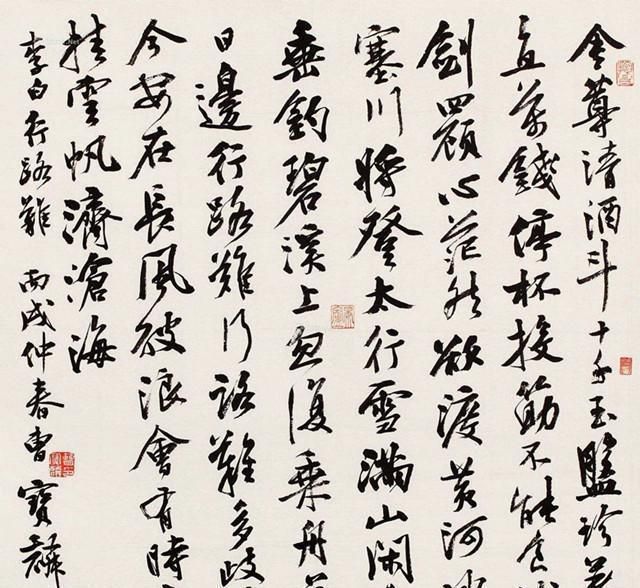 金尊清酒斗十千玉盤珍
直萬錢停杯投筯不能食
劍四顧心茫然欲渡黃河冰
塞川將登太行雪滿山閑
垂釣碧溪上忽復乘舟
日邊行路難行路難多歧
今安在長風破浪會有時
挂雲帆濟滄海
李白行路難 丙戌仲春曹寶麟